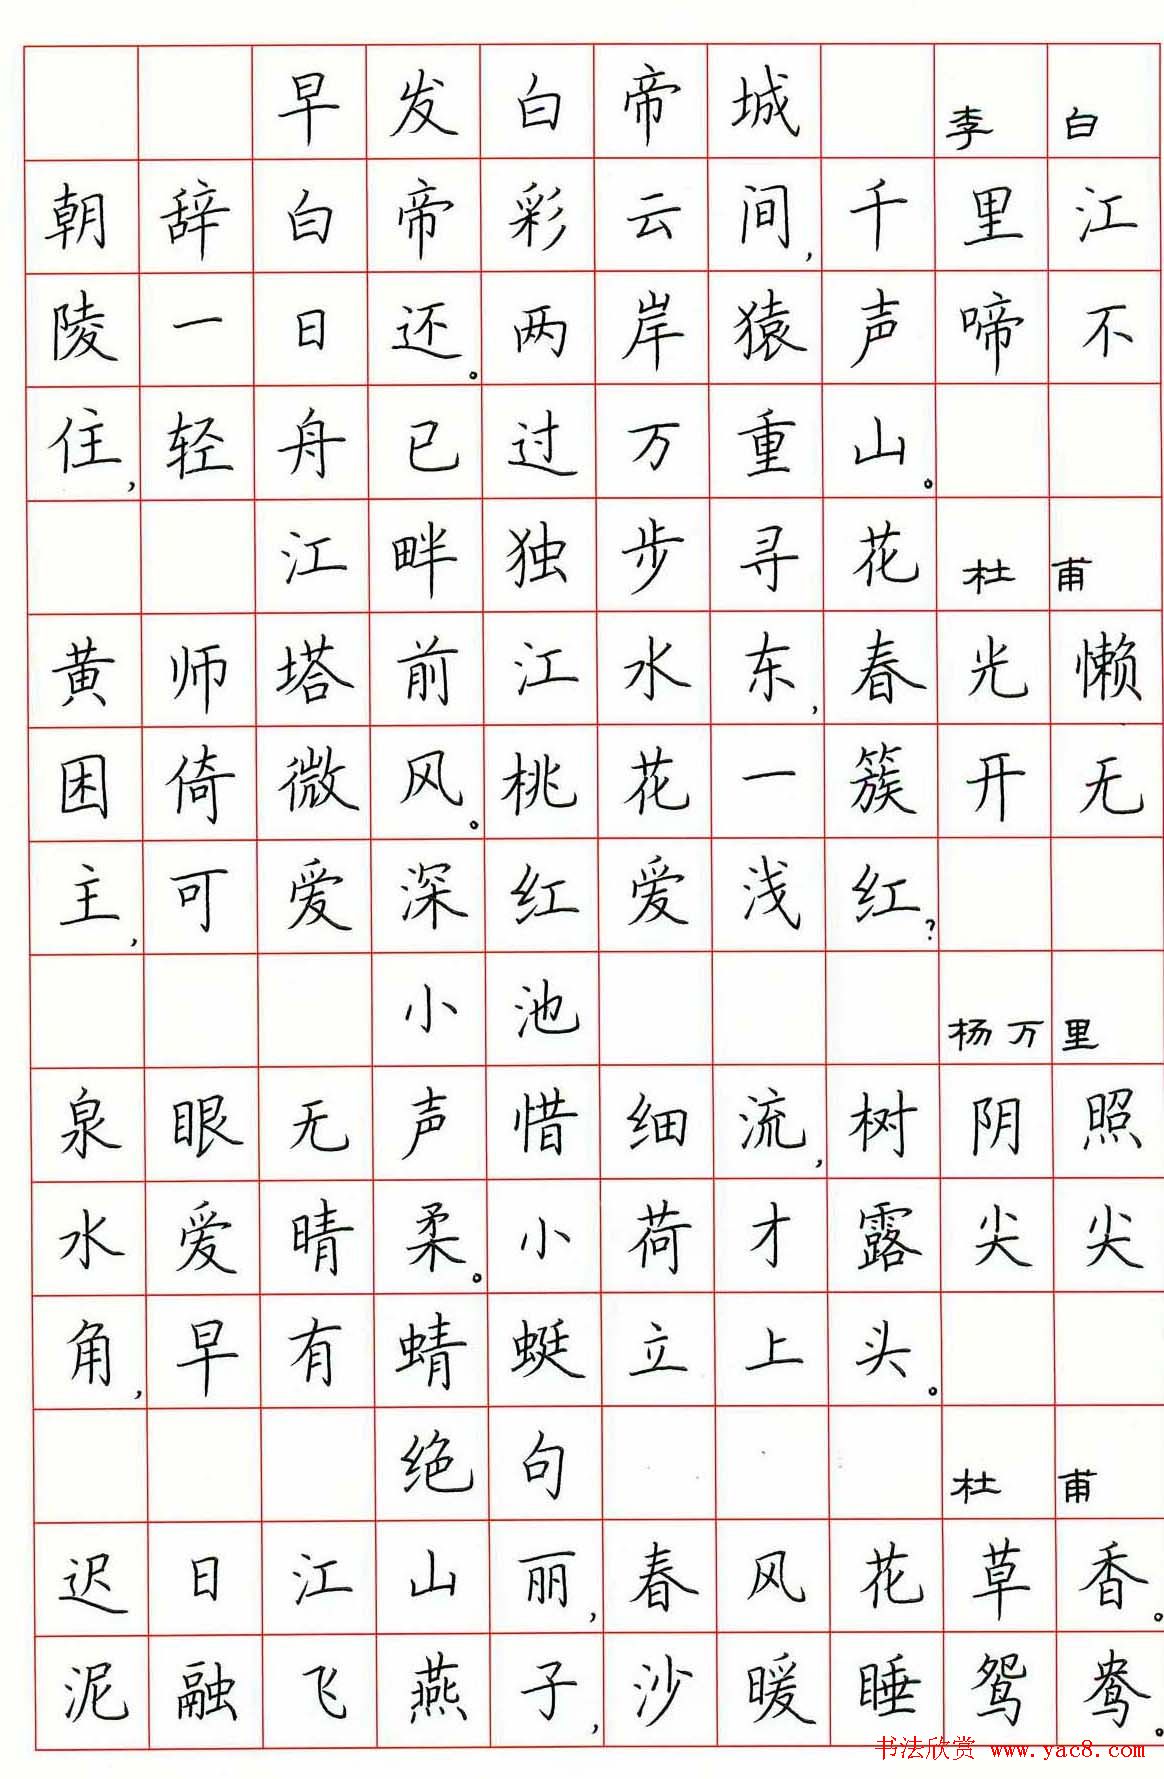 早发白帝城 李白
朝辞白帝彩云间,千里江
陵一日还。两岸猿声啼不
住,轻舟已过万重山。
江畔独步寻花 杜甫
黄师塔前江水东,春光懒
困倚微风。桃花一簇开无
主,可爱深红爱浅红?
小池 杨万里
泉眼无声惜细流,树阴照
水爱晴柔。小荷才露尖尖
角,早有蜻蜓立上头。
绝句 杜甫
迟日江山丽,春风花草香。
泥融飞燕子,沙暖睡鸳鸯。
书法欣赏 www.yac8.com